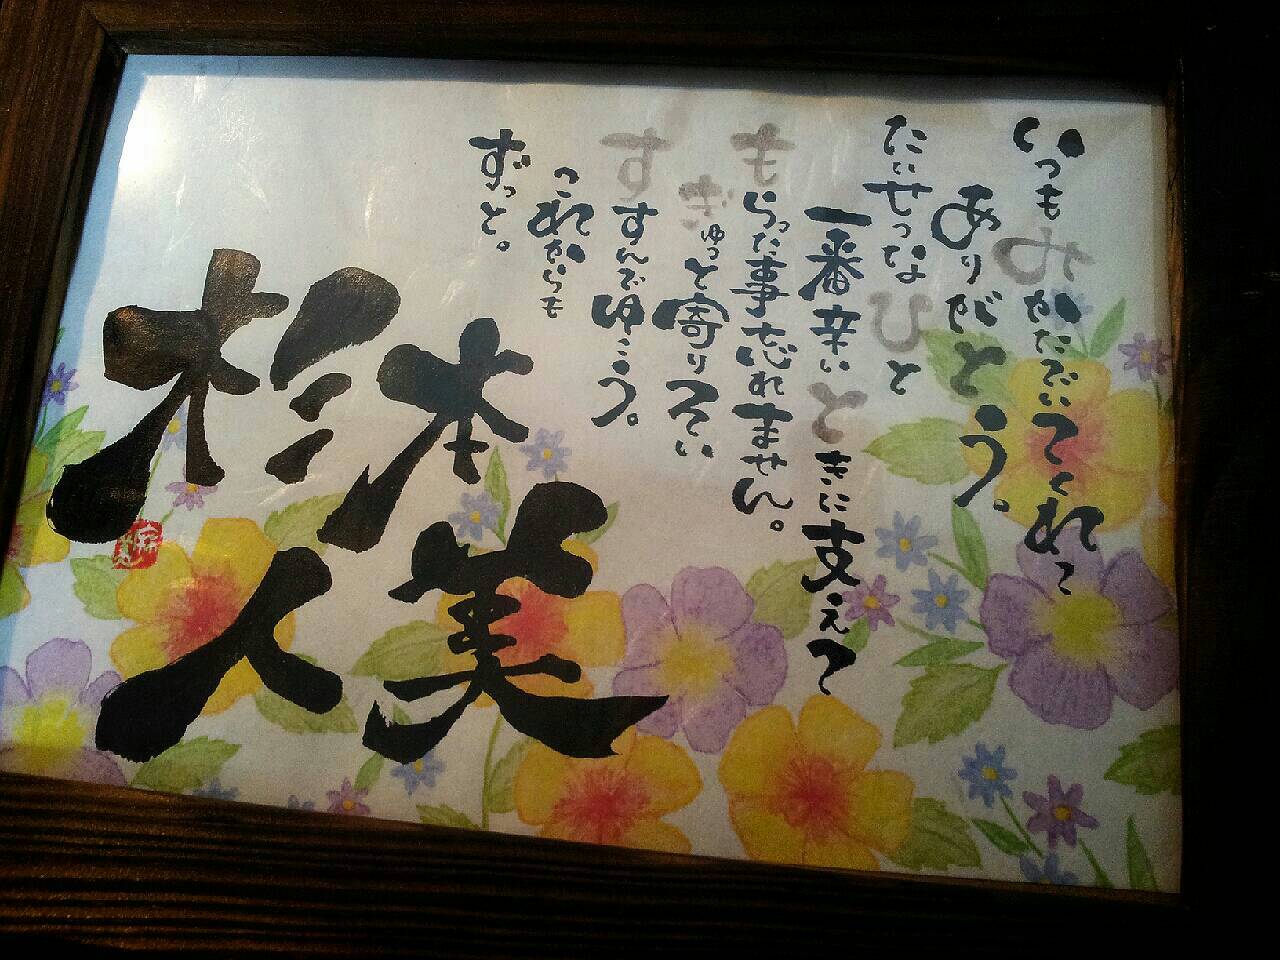 いつもみかたでいてくれて
ありがとう。
たいせつなひと
一番辛いときに支えて
もらった事忘れません。
ぎゅっと寄りそい
すすんでゆこう。
これからも
ずっと。
杉本
人美